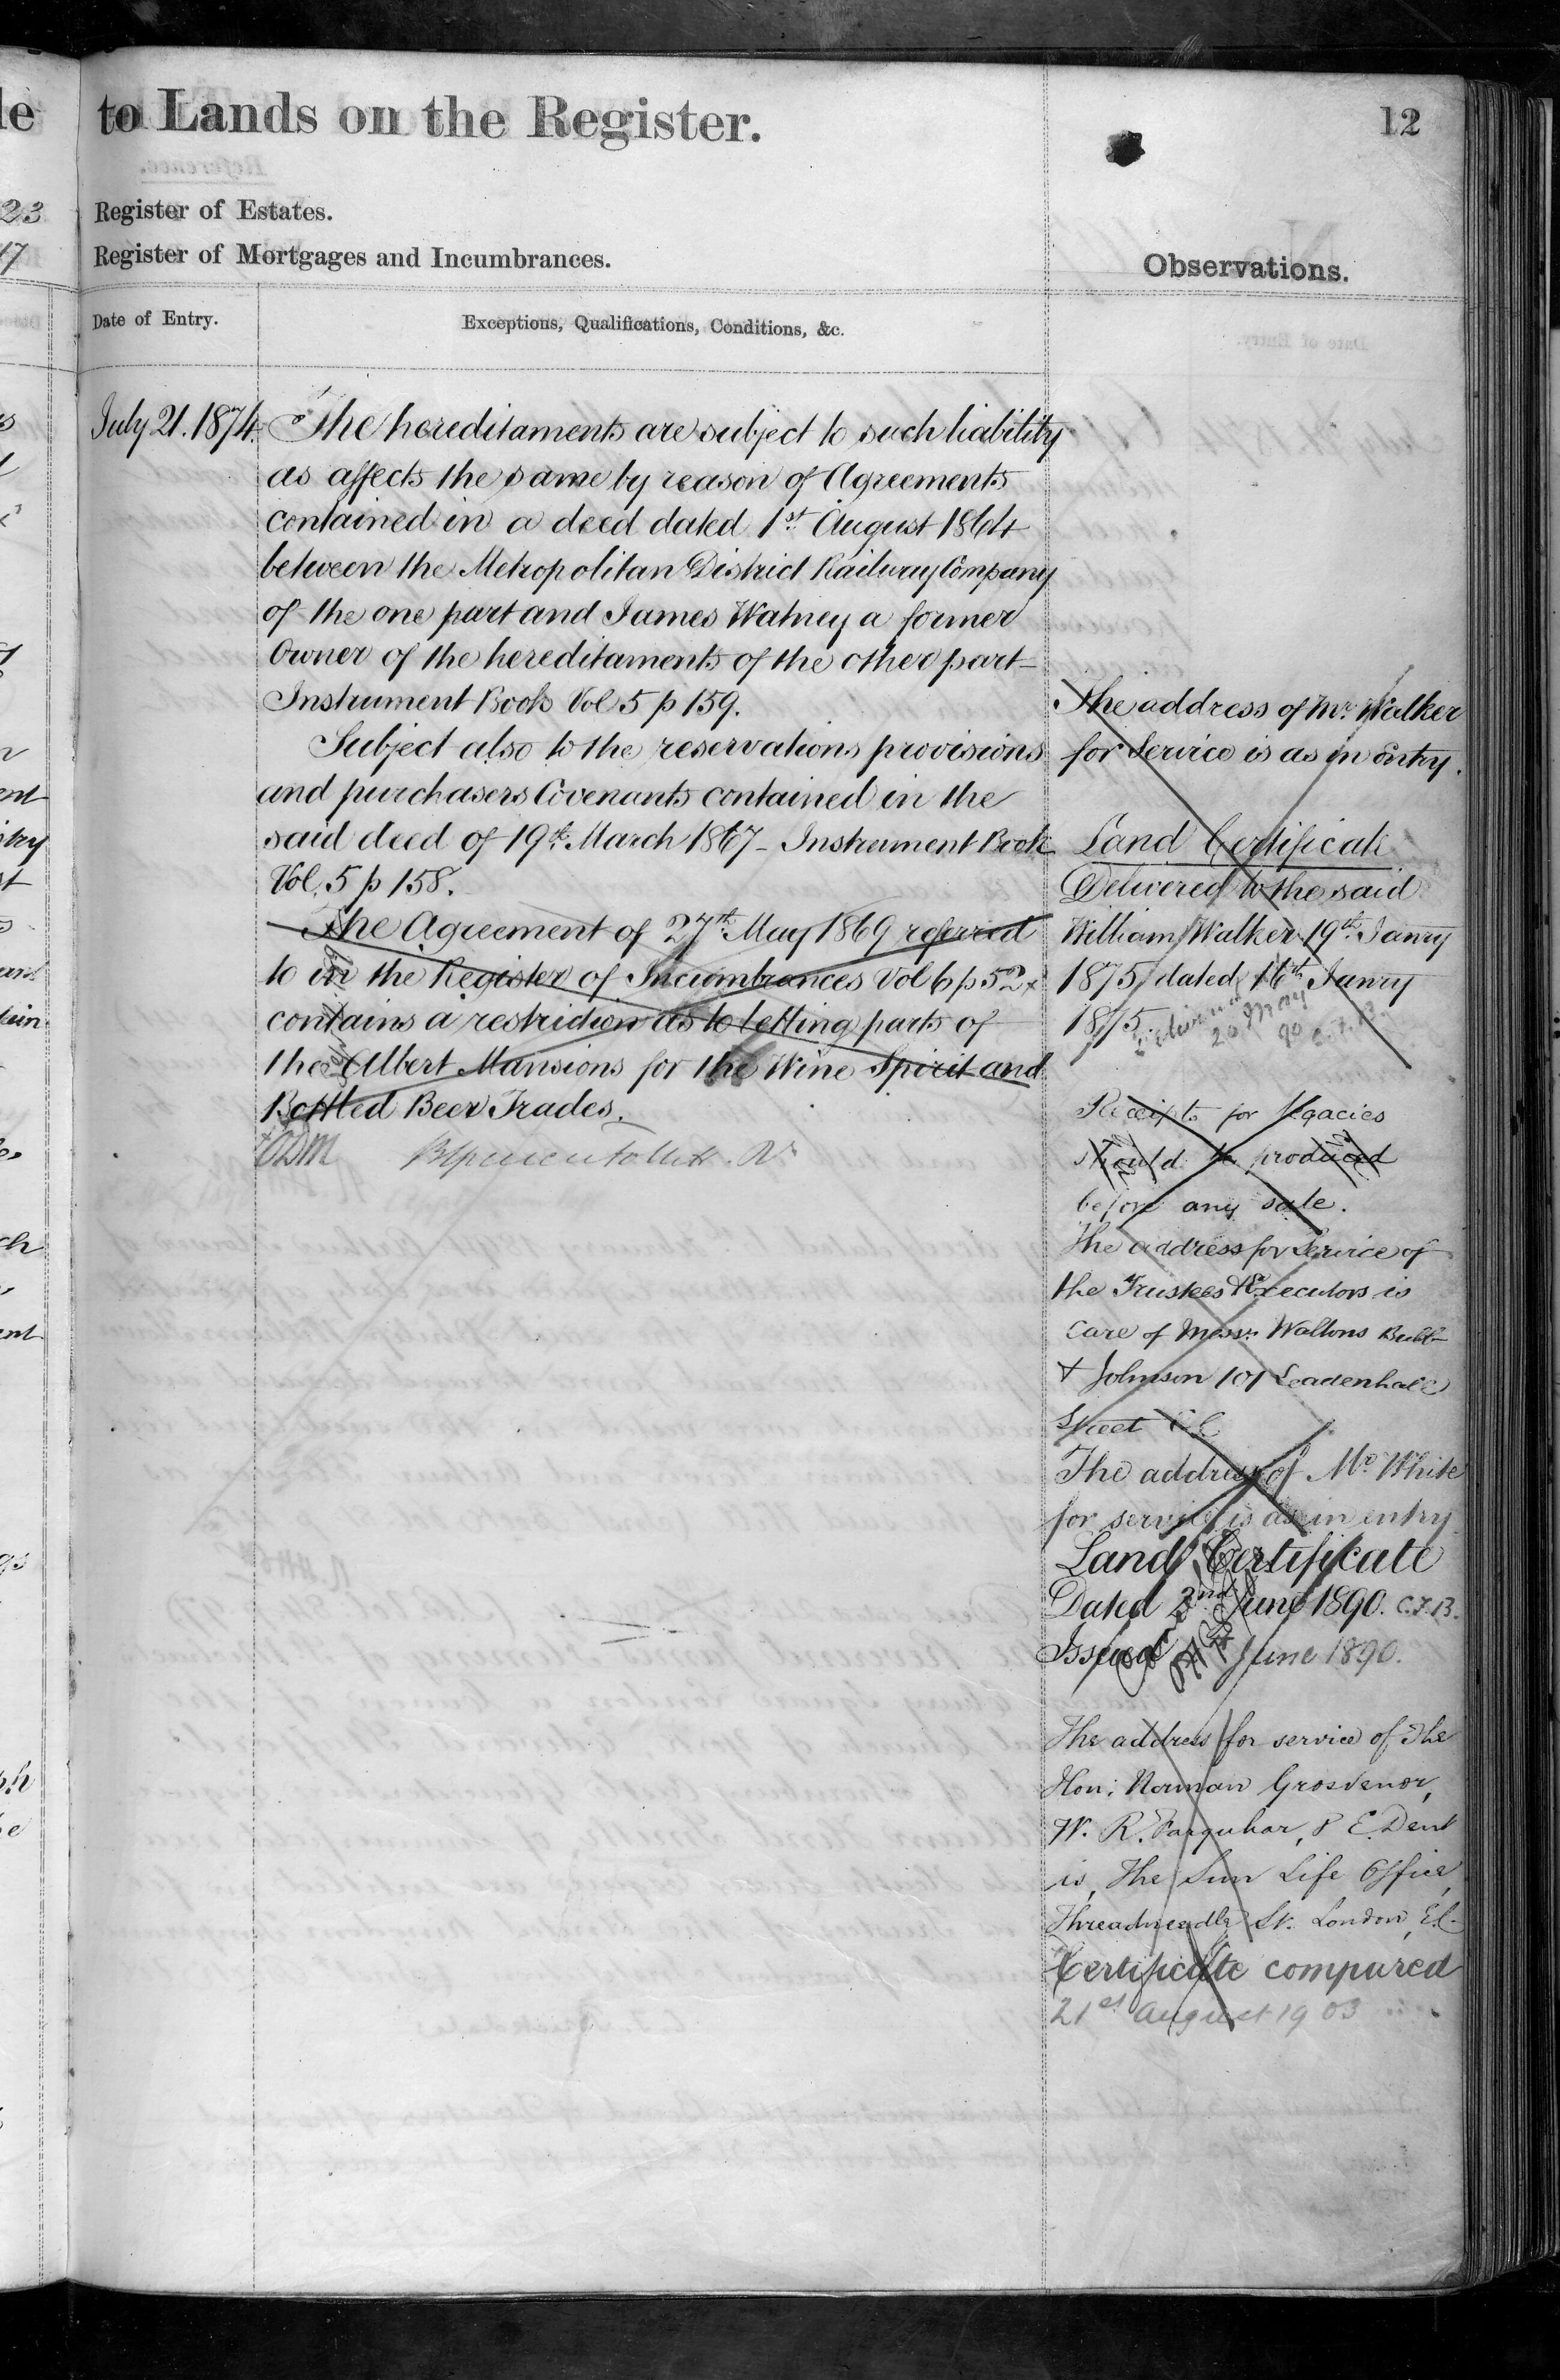 to Lands on the Register.
12
Register of Estates.
Register of Mortgages and Incumbrances.
Observations.
Date of Entry.
Exceptions, Qualifications, Conditions, &c.
July 21. 1874.
The hereditaments are subject to such liability
as affects the same by reason of Agreements
contained in a deed dated 1st August 1864
between the Metropolitan District Railway Company
of the one part and James Watney a former
Owner of the hereditaments of the other part
Instrument Book Vol 5 p 159.
Subject also to the reservations provisions
and purchasers Covenants contained in the
said deed of 19th March 1867 - Instrument Book
Vol. 5 p 158.
The Agreement of 27th May 1869 referred
to in the Register of Incumbrances Vol 6 p 52
contains a restriction as to letting parts of
the Albert Mansions for the Wine Spirit and
Bottled Beer Trades.
The address of Mr. Walker
for Service is as in Entry.
Land Certificate
Delivered to the said
William Walker 19th Janry
1875 dated 16th Janry
1875.
20 May
90 C.F.B.
Receipts for legacies
should be produced
before any sale.
The address for Service of
the Trustees & Executors is
Care of Messrs Waltons Bubb
& Johnson 101 Leadenhall
Street E C
The address of Mr White
for service is as in entry
Land Certificate
Dated 2nd June 1890. C.F.B.
Issued June 1890.
The address for service of The
Hon: Norman Grosvenor,
W. R. Farquhar, & E. Dent
is, The Sun Life Office,
Threadneedle St. London, E.C.
Certificate compared
21st August 1903